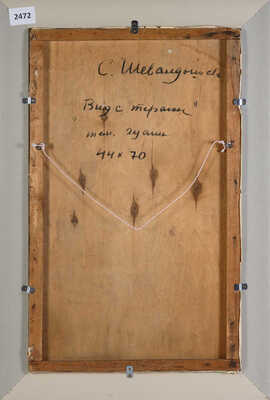 2472
С. Шевандо
"Вид с террасы"
тем. гуашь
44 x 70